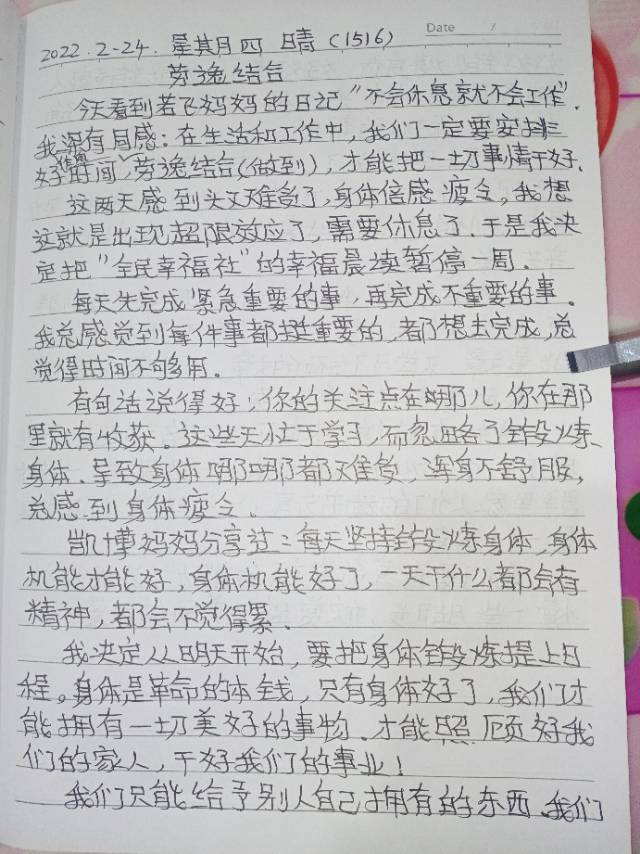 Date /
2022.2-24. 星期四 晴 (1516)
劳逸结合
今天看到若飞妈妈的日记"不会休息就不会工作".
我深有同感:在生活和工作中,我们一定要安排
好时间,劳逸结合(做到),才能把一切事情干好.
这两天感到头又难受了,身体倍感疲乏,我想
这就是出现超限效应了,需要休息了.于是我决
定把"全民幸福社"的幸福晨读暂停一周.
每天先完成紧急重要的事,再完成不重要的事.
我总感觉到每件事都挺重要的,都想去完成,总
觉得时间不够用.
有句话说得好;你的关注点在哪儿,你在那
里就有收获.这些天忙于学习,而忽略了锻炼
身体.导致身体哪哪都难受,浑身不舒服,
总感到身体疲乏.
凯博妈妈分享过:每天坚持锻炼身体,身体
机能才能好,身体机能好了,一天干什么都会有
精神,都会不觉得累.
我决定从明天开始,要把身体锻炼提上日
程。身体是革命的本钱,只有身体好了,我们才
能拥有一切美好的事物.才能照顾好我
们的家人,干好我们的事业!
我们只能给予别人自己拥有的东西、我们